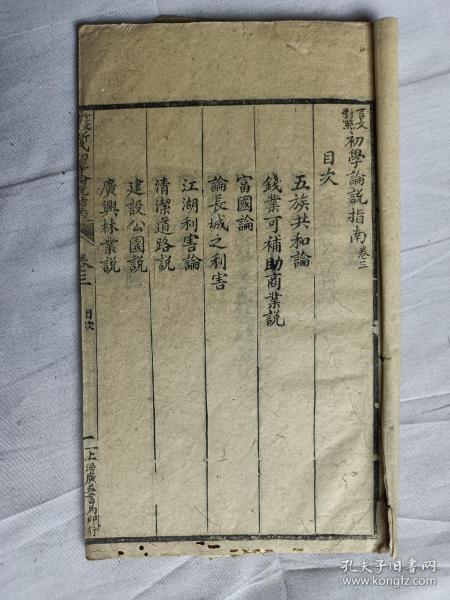 言文對照 初學論說指南 卷三
目次
五族共和論
錢業可補助商業説
富國論
論長城之利害
江湖利害論
清潔道路説
建設公園説
廣興林業説
卷三
目次
一
上海廣益書局印行
孔夫子旧书网
www.kongfz.com